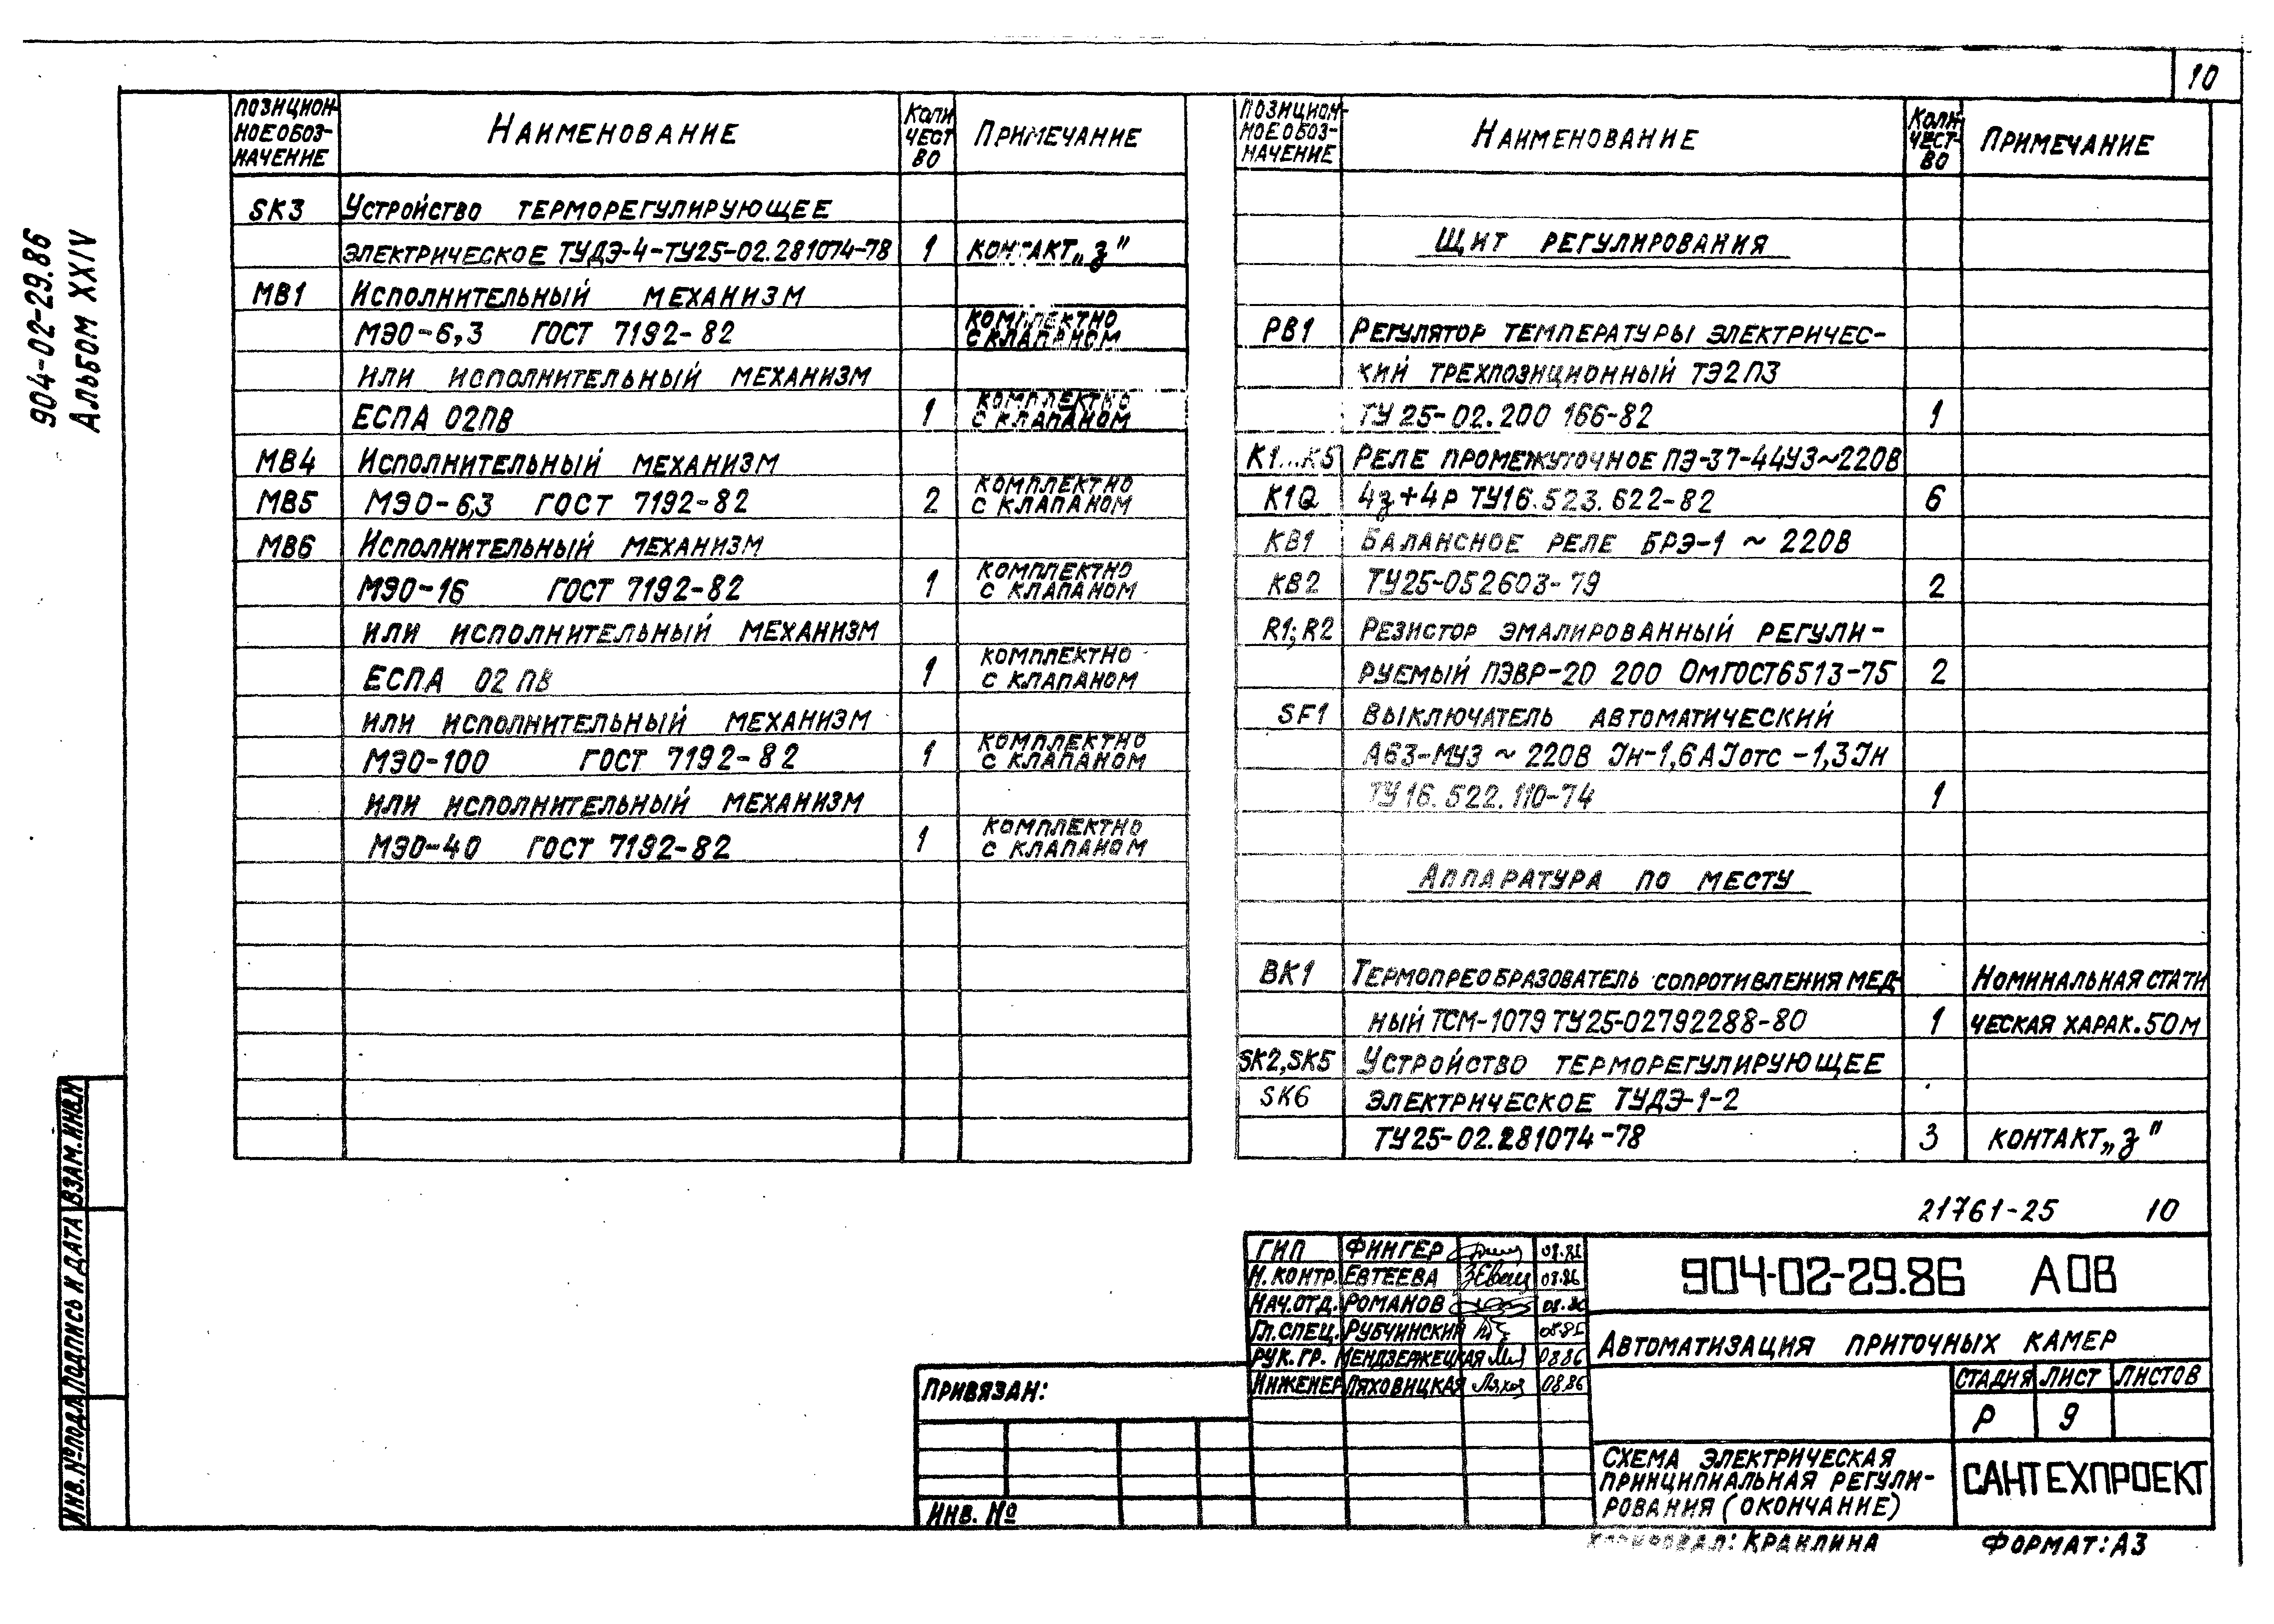 10
904-02-29.86
Альбом XXIV
Позицион-
ное обоз-
начение
Наименование
Коли
чест
во
Примечание
SK3 Устройство терморегулирующее
электрическое ТУДЭ-4-ТУ25-02.281074-78 1 контакт „з"
МВ1 Исполнительный механизм
МЭО-6,3 ГОСТ 7192-82 комплектно с клапаном
или исполнительный механизм
ЕСПА 02ПВ 1 комплектно с клапаном
МВ4 Исполнительный механизм
МВ5 МЭО-6,3 ГОСТ 7192-82 2 комплектно с клапаном
МВ6 Исполнительный механизм
МЭО-16 ГОСТ 7192-82 1 комплектно с клапаном
или исполнительный механизм
ЕСПА 02ПВ 1 комплектно с клапаном
или исполнительный механизм
МЭО-100 ГОСТ 7192-82 1 комплектно с клапаном
или исполнительный механизм
МЭО-40 ГОСТ 7192-82 1 комплектно с клапаном
Позицион-
ное обоз-
начение
Наименование
Коли
чест-
во
Примечание
Щит регулирования
РВ1 Регулятор температуры электричес-
кий трехпозиционный ТЭ2П3
ТУ 25-02.200 166-82 1
К1...К5 Реле промежуточное ПЭ-37-44У3~220В
К1Q 4з+4р ТУ16.523.622-82 6
КВ1 Балансное реле БРЭ-1 ~ 220В
КВ2 ТУ25-052603-79 2
R1; R2 Резистор эмалированный регули-
руемый ПЭВР-20 200 Ом ГОСТ6513-75 2
SF1 Выключатель автоматический
А63-МУ3 ~ 220В Jн-1,6А Jотс-1,3Jн
ТУ16.522.110-74 1
Аппаратура по месту
ВК1 Термопреобразователь сопротивления мед- Номинальная стати
ный ТСМ-1079 ТУ25-02792288-80 1 ческая харак. 50М
SK2, SK5 Устройство терморегулирующее
SK6 электрическое ТУДЭ-1-2
ТУ25-02.281074-78 3 контакт „з"
21761-25 10
ГИП Фингер 08.86
Н. контр. Евтеева 08.86
Нач. отд. Романов 08.86
Гл. спец. Рубчинский
Рук. гр. Мендзержецкая 08.86
Инженер Ляховицкая 08.86
904-02-29.86 АОВ
Автоматизация приточных камер
Стадия Лист Листов
Р 9
Схема электрическая
принципиальная регули-
рования (окончание)
САНТЕХПРОЕКТ
Привязан:
Инв. №
Копировал: Краклина Формат: А3
Взам. инв. №
Подпись и дата
Инв. № подл.